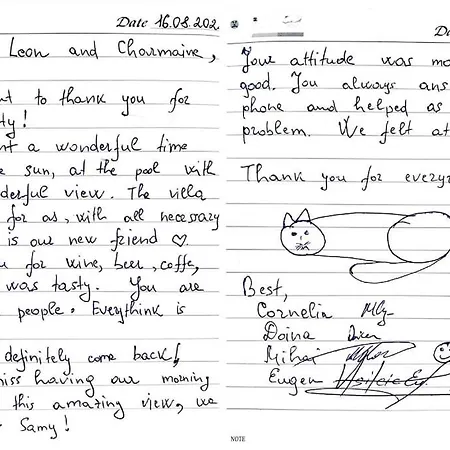 Date 16.08.202
Leon and Charmaine,
nt to thank you for
ty!
nt a wonderful time
e sun, at the pool with
derful view. The villa
for as, with all necessary
is our new friend ♡.
u for wine, beer, coffe,
was tasty. You are
people. Everythink is
definitely come back!
iss having our morning
this amazing view, we
Samy!
Da
Your attitude was mo
good. You always ans
phone and helped as
problem. We felt at
Thank you for every
Best,
Cornelia
Doina
Mihai
Eugen
NOTE